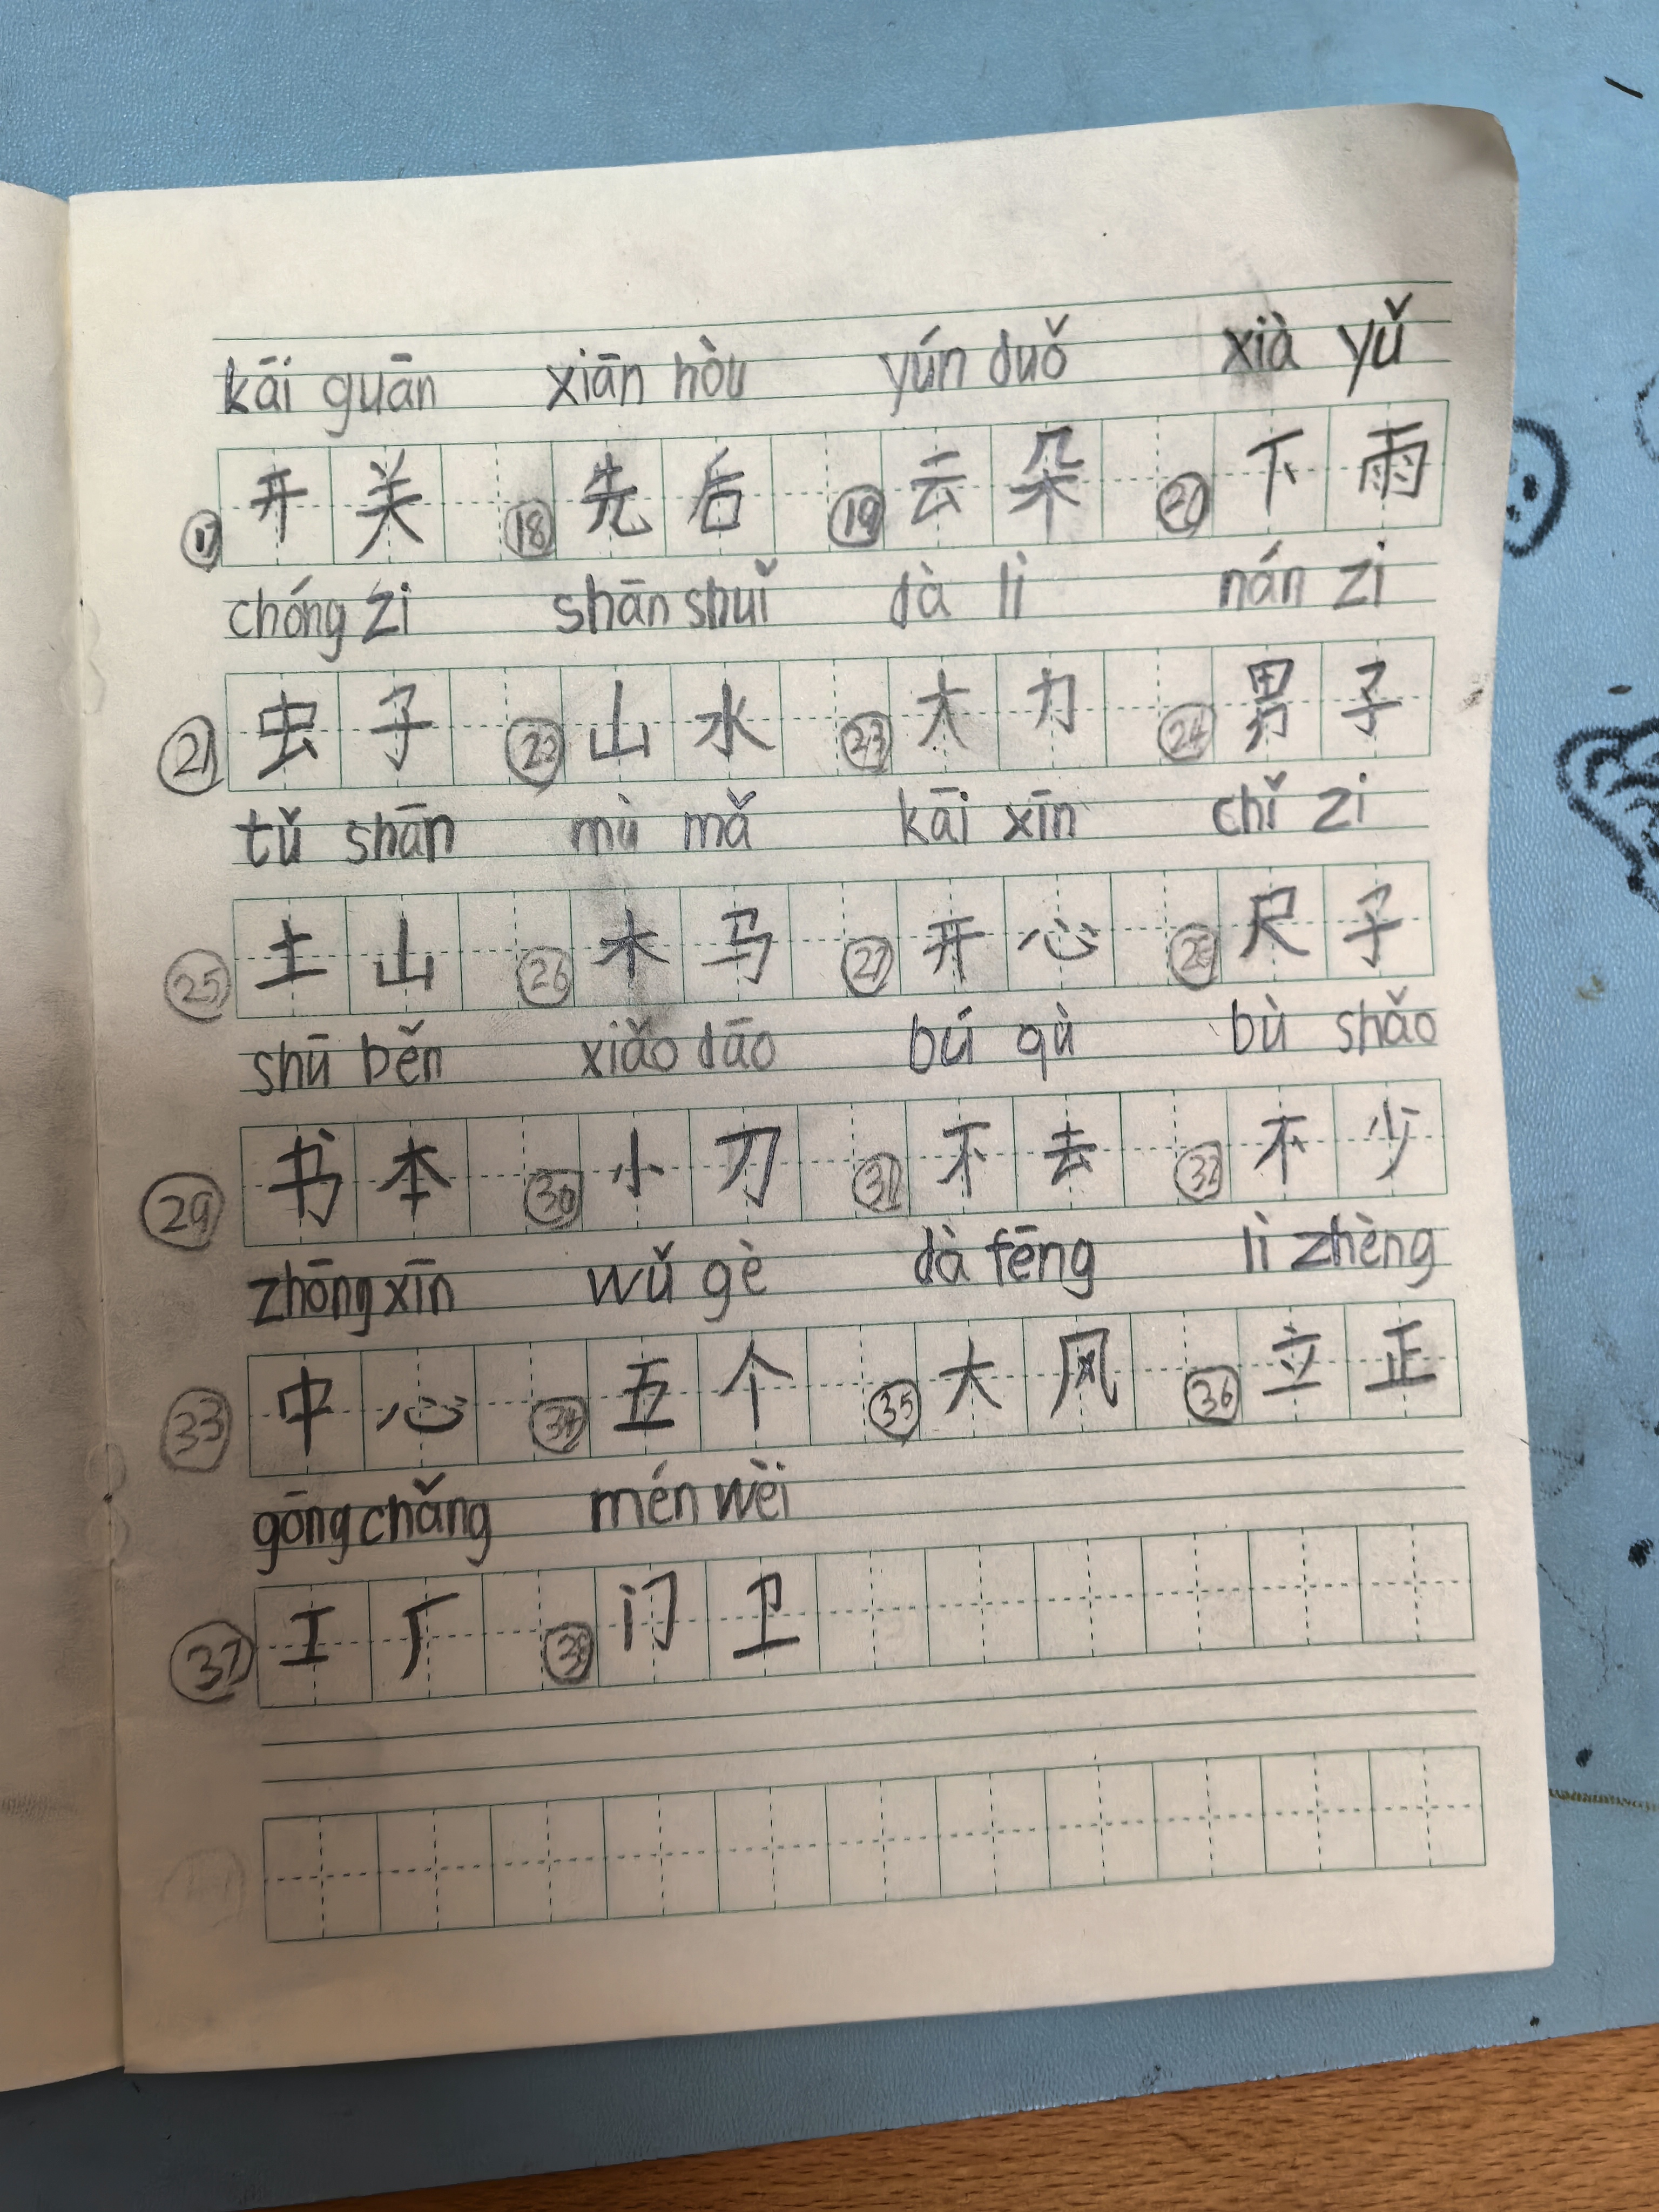 kāi guān xiān hòu yún duǒ xià yǔ
⑰ 开关 ⑱ 先后 ⑲ 云朵 ⑳ 下雨
chóng zi shān shuǐ dà lì nán zǐ
㉑ 虫子 ㉒ 山水 ㉓ 大力 ㉔ 男子
tǔ shān mù mǎ kāi xīn chǐ zi
㉕ 土山 ㉖ 木马 ㉗ 开心 ㉘ 尺子
shū běn xiǎo dāo bú qù bù shǎo
㉙ 书本 ㉚ 小刀 ㉛ 不去 ㉜ 不少
zhōng xīn wǔ gè dà fēng lì zhèng
㉝ 中心 ㉞ 五个 ㉟ 大风 ㊱ 立正
gōng chǎng mén wèi
㊲ 工厂 ㊳ 门卫